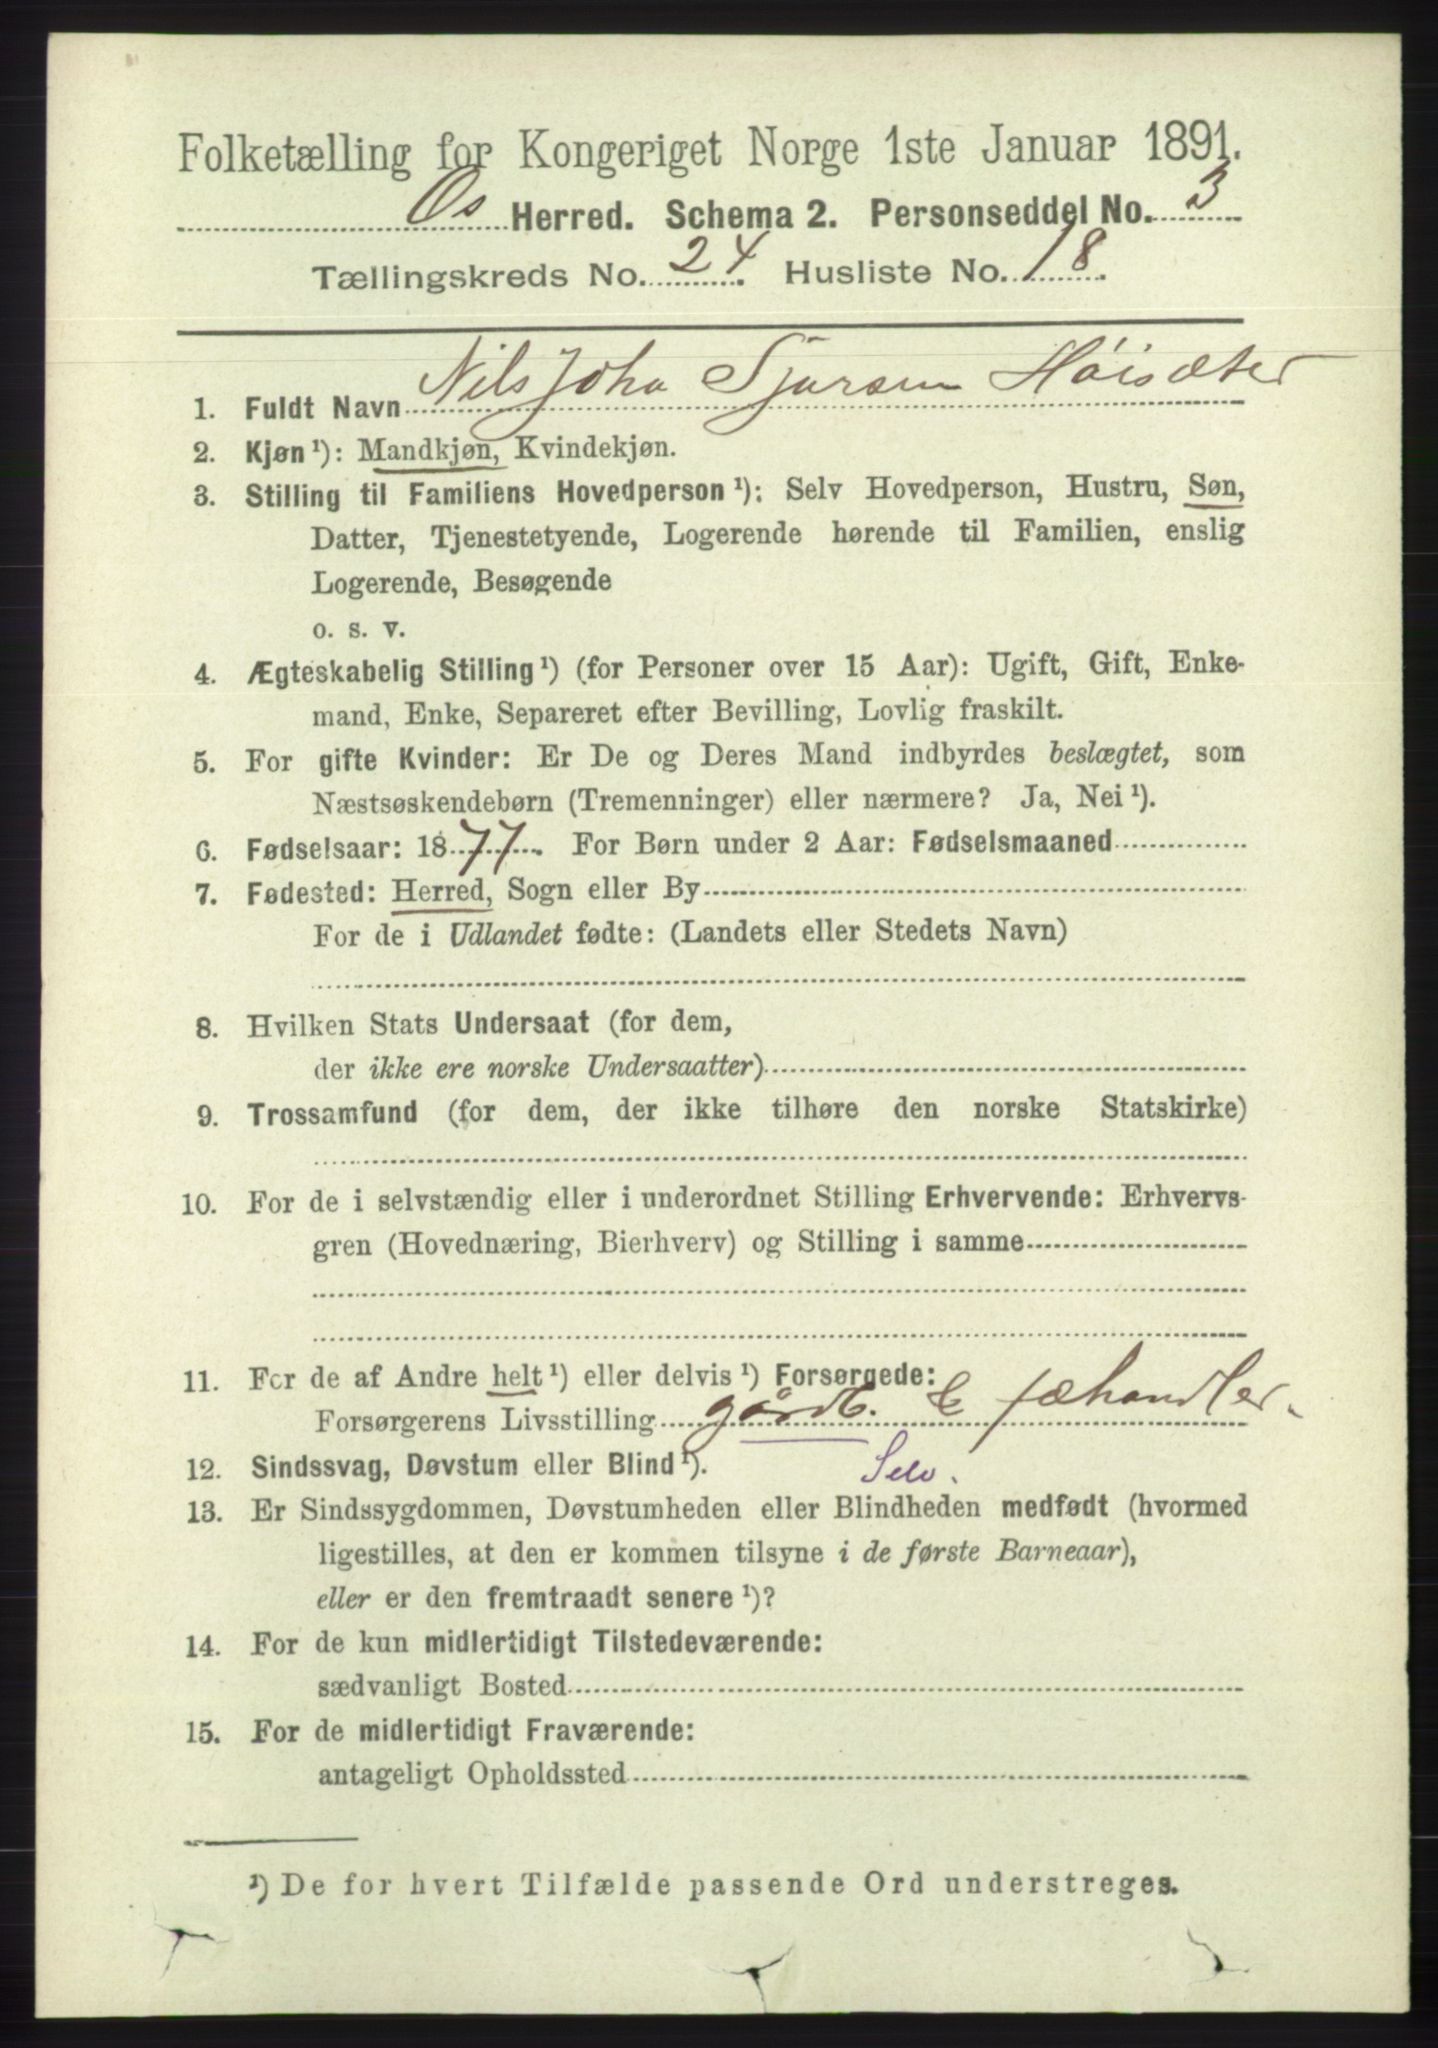 Folketælling for Kongeriget Norge 1ste Januar 1891.
Os Herred. Schema 2. Personseddel No. 3
Tællingskreds No. 24. Husliste No. 18.
1. Fuldt Navn Nils Joha Sjursen Höisæter
2. Kjøn ¹): Mandkjøn, Kvindekjøn.
3. Stilling til Familiens Hovedperson ¹): Selv Hovedperson, Hustru, Søn,
Datter, Tjenestetyende, Logerende hørende til Familien, enslig
Logerende, Besøgende
o. s. v.
4. Ægteskabelig Stilling ¹) (for Personer over 15 Aar): Ugift, Gift, Enke-
mand, Enke, Separeret efter Bevilling, Lovlig fraskilt.
5. For gifte Kvinder: Er De og Deres Mand indbyrdes beslægtet, som
Næstsøskendebørn (Tremenninger) eller nærmere? Ja, Nei ¹).
6. Fødselsaar: 1877. For Børn under 2 Aar: Fødselsmaaned
7. Fødested: Herred, Sogn eller By
For de i Udlandet fødte: (Landets eller Stedets Navn)
8. Hvilken Stats Undersaat (for dem,
der ikke ere norske Undersaatter)
9. Trossamfund (for dem, der ikke tilhøre den norske Statskirke)
10. For de i selvstændig eller i underordnet Stilling Erhvervende: Erhvervs-
gren (Hovednæring, Bierhverv) og Stilling i samme
11. For de af Andre helt ¹) eller delvis ¹) Forsørgede:
Forsørgerens Livsstilling gårdb. & fæhandler.
12. Sindssvag, Døvstum eller Blind ¹). Selv.
13. Er Sindssygdommen, Døvstumheden eller Blindheden medfødt (hvormed
ligestilles, at den er kommen tilsyne i de første Barneaar),
eller er den fremtraadt senere ¹)?
14. For de kun midlertidigt Tilstedeværende:
sædvanligt Bosted
15. For de midlertidigt Fraværende:
antageligt Opholdssted
¹) De for hvert Tilfælde passende Ord understreges.